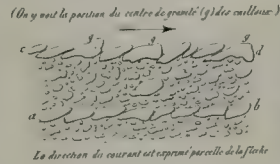 (On y voit la position du centre de gravité (g) des cailloux)
g g g
c d
a b
La direction du courant est exprimé par celle de la flèche